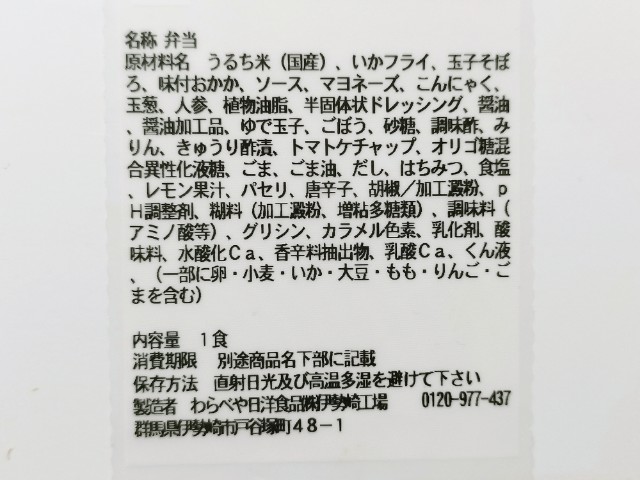 名称 弁当
原材料名 うるち米（国産）、いかフライ、玉子そぼ
ろ、味付おかか、ソース、マヨネーズ、こんにゃく、
玉葱、人参、植物油脂、半固体状ドレッシング、醤油
、醤油加工品、ゆで玉子、ごぼう、砂糖、調味酢、み
りん、きゅうり酢漬、トマトケチャップ、オリゴ糖混
合異性化液糖、ごま、ごま油、だし、はちみつ、食塩
、レモン果汁、パセリ、唐辛子、胡椒／加工澱粉、ｐ
Ｈ調整剤、糊料（加工澱粉、増粘多糖類）、調味料（
アミノ酸等）、グリシン、カラメル色素、乳化剤、酸
味料、水酸化Ｃａ、香辛料抽出物、乳酸Ｃａ、くん液
、（一部に卵・小麦・いか・大豆・もも・りんご・ご
まを含む）
内容量 １食
消費期限 別途商品名下部に記載
保存方法 直射日光及び高温多湿を避けて下さい
製造者 わらべや日洋食品㈱伊勢崎工場 0120-977-437
群馬県伊勢崎市戸谷塚町４８－１